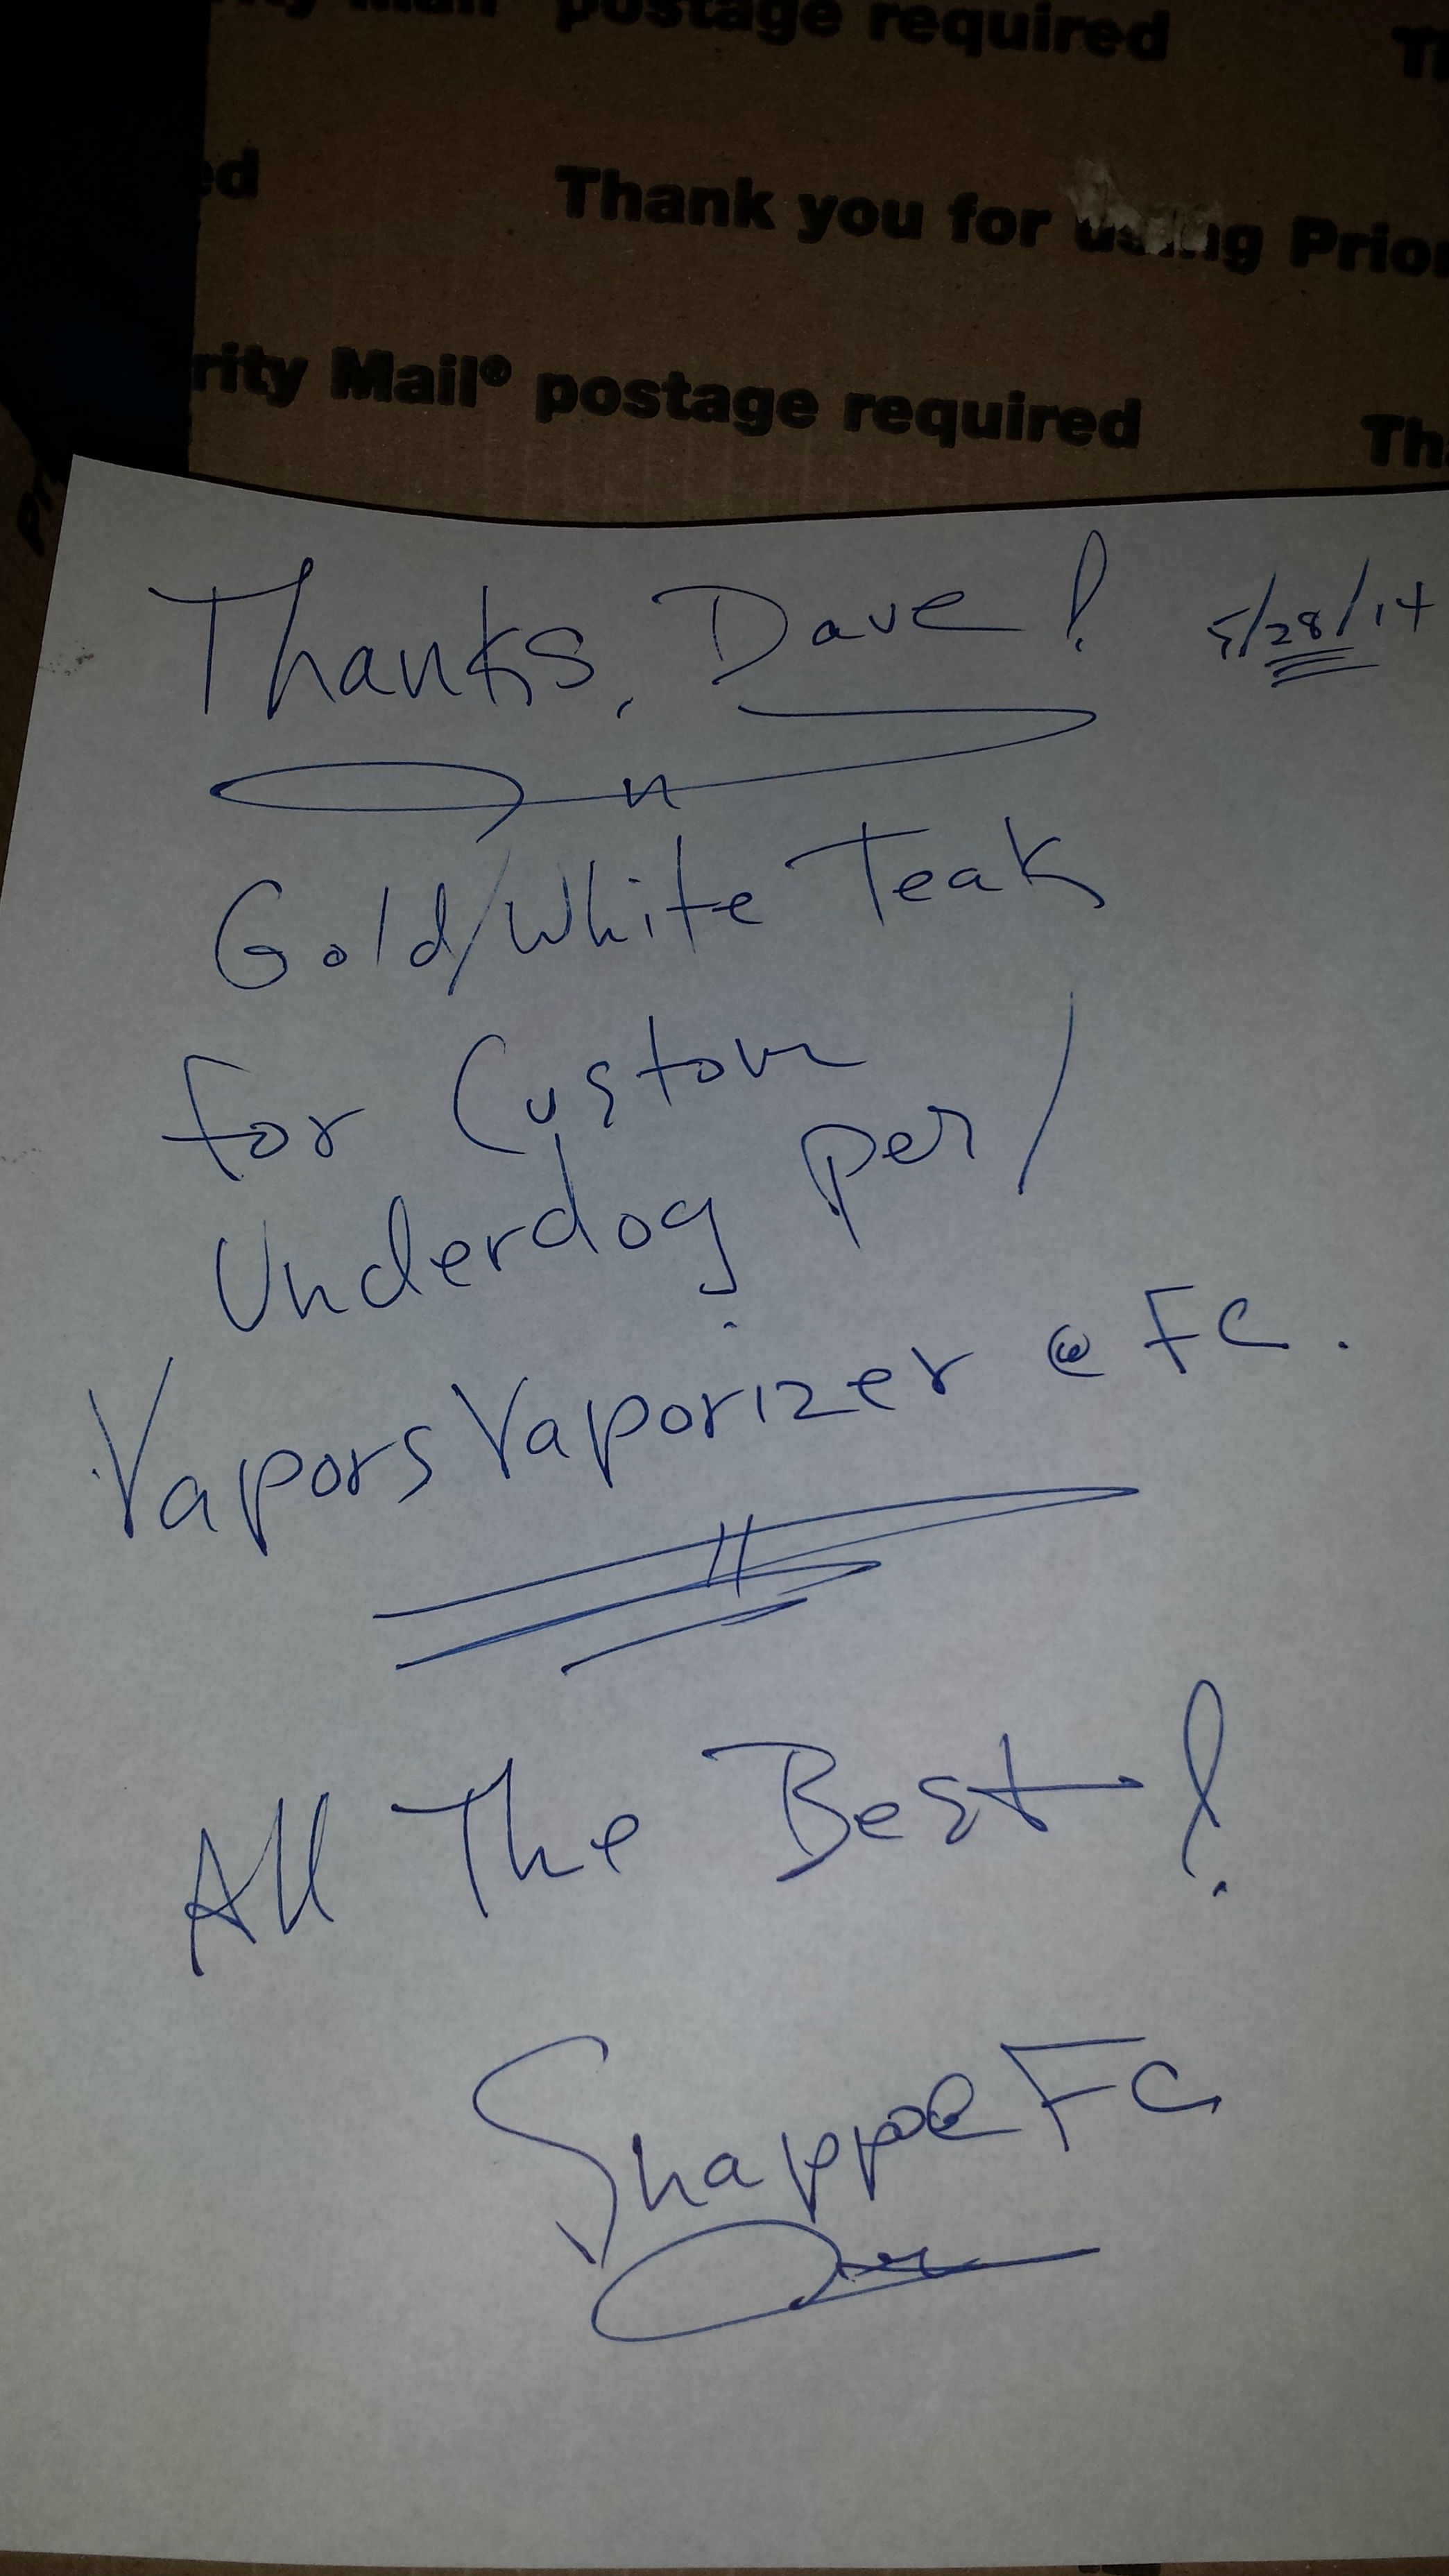 ity Mail® postage required
ed Thank you for using Prior
rity Mail® postage required Tha
Thanks, Dave! 5/28/14
Gold/White Teak
for Custom
Underdog per/
VaporsVaporizer @ FC.
All The Best!
SnappoFC